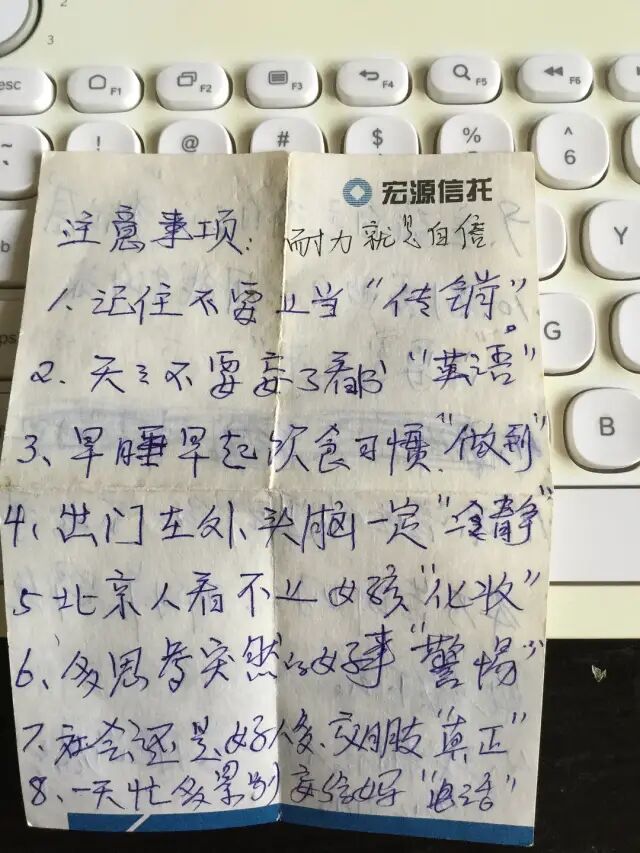 3
esc
F1
F2
F3
F4
F5
F6
~
!
@
#
$
%
^
6
Y
G
B
宏源信托
注意事项: 耐力就是自信
1、记住不要上当“传销”。
2、天天不要忘了看书“英语”
3、早睡早起饮食习惯“做到”
4、出门在外、头脑一定“冷静”
5 北京人看不上女孩“化妆”
6、多思考突然的好事“警惕”
7、社会还是好人多、交朋友“真正”
8、一天忙多累别忘给妈“电话”